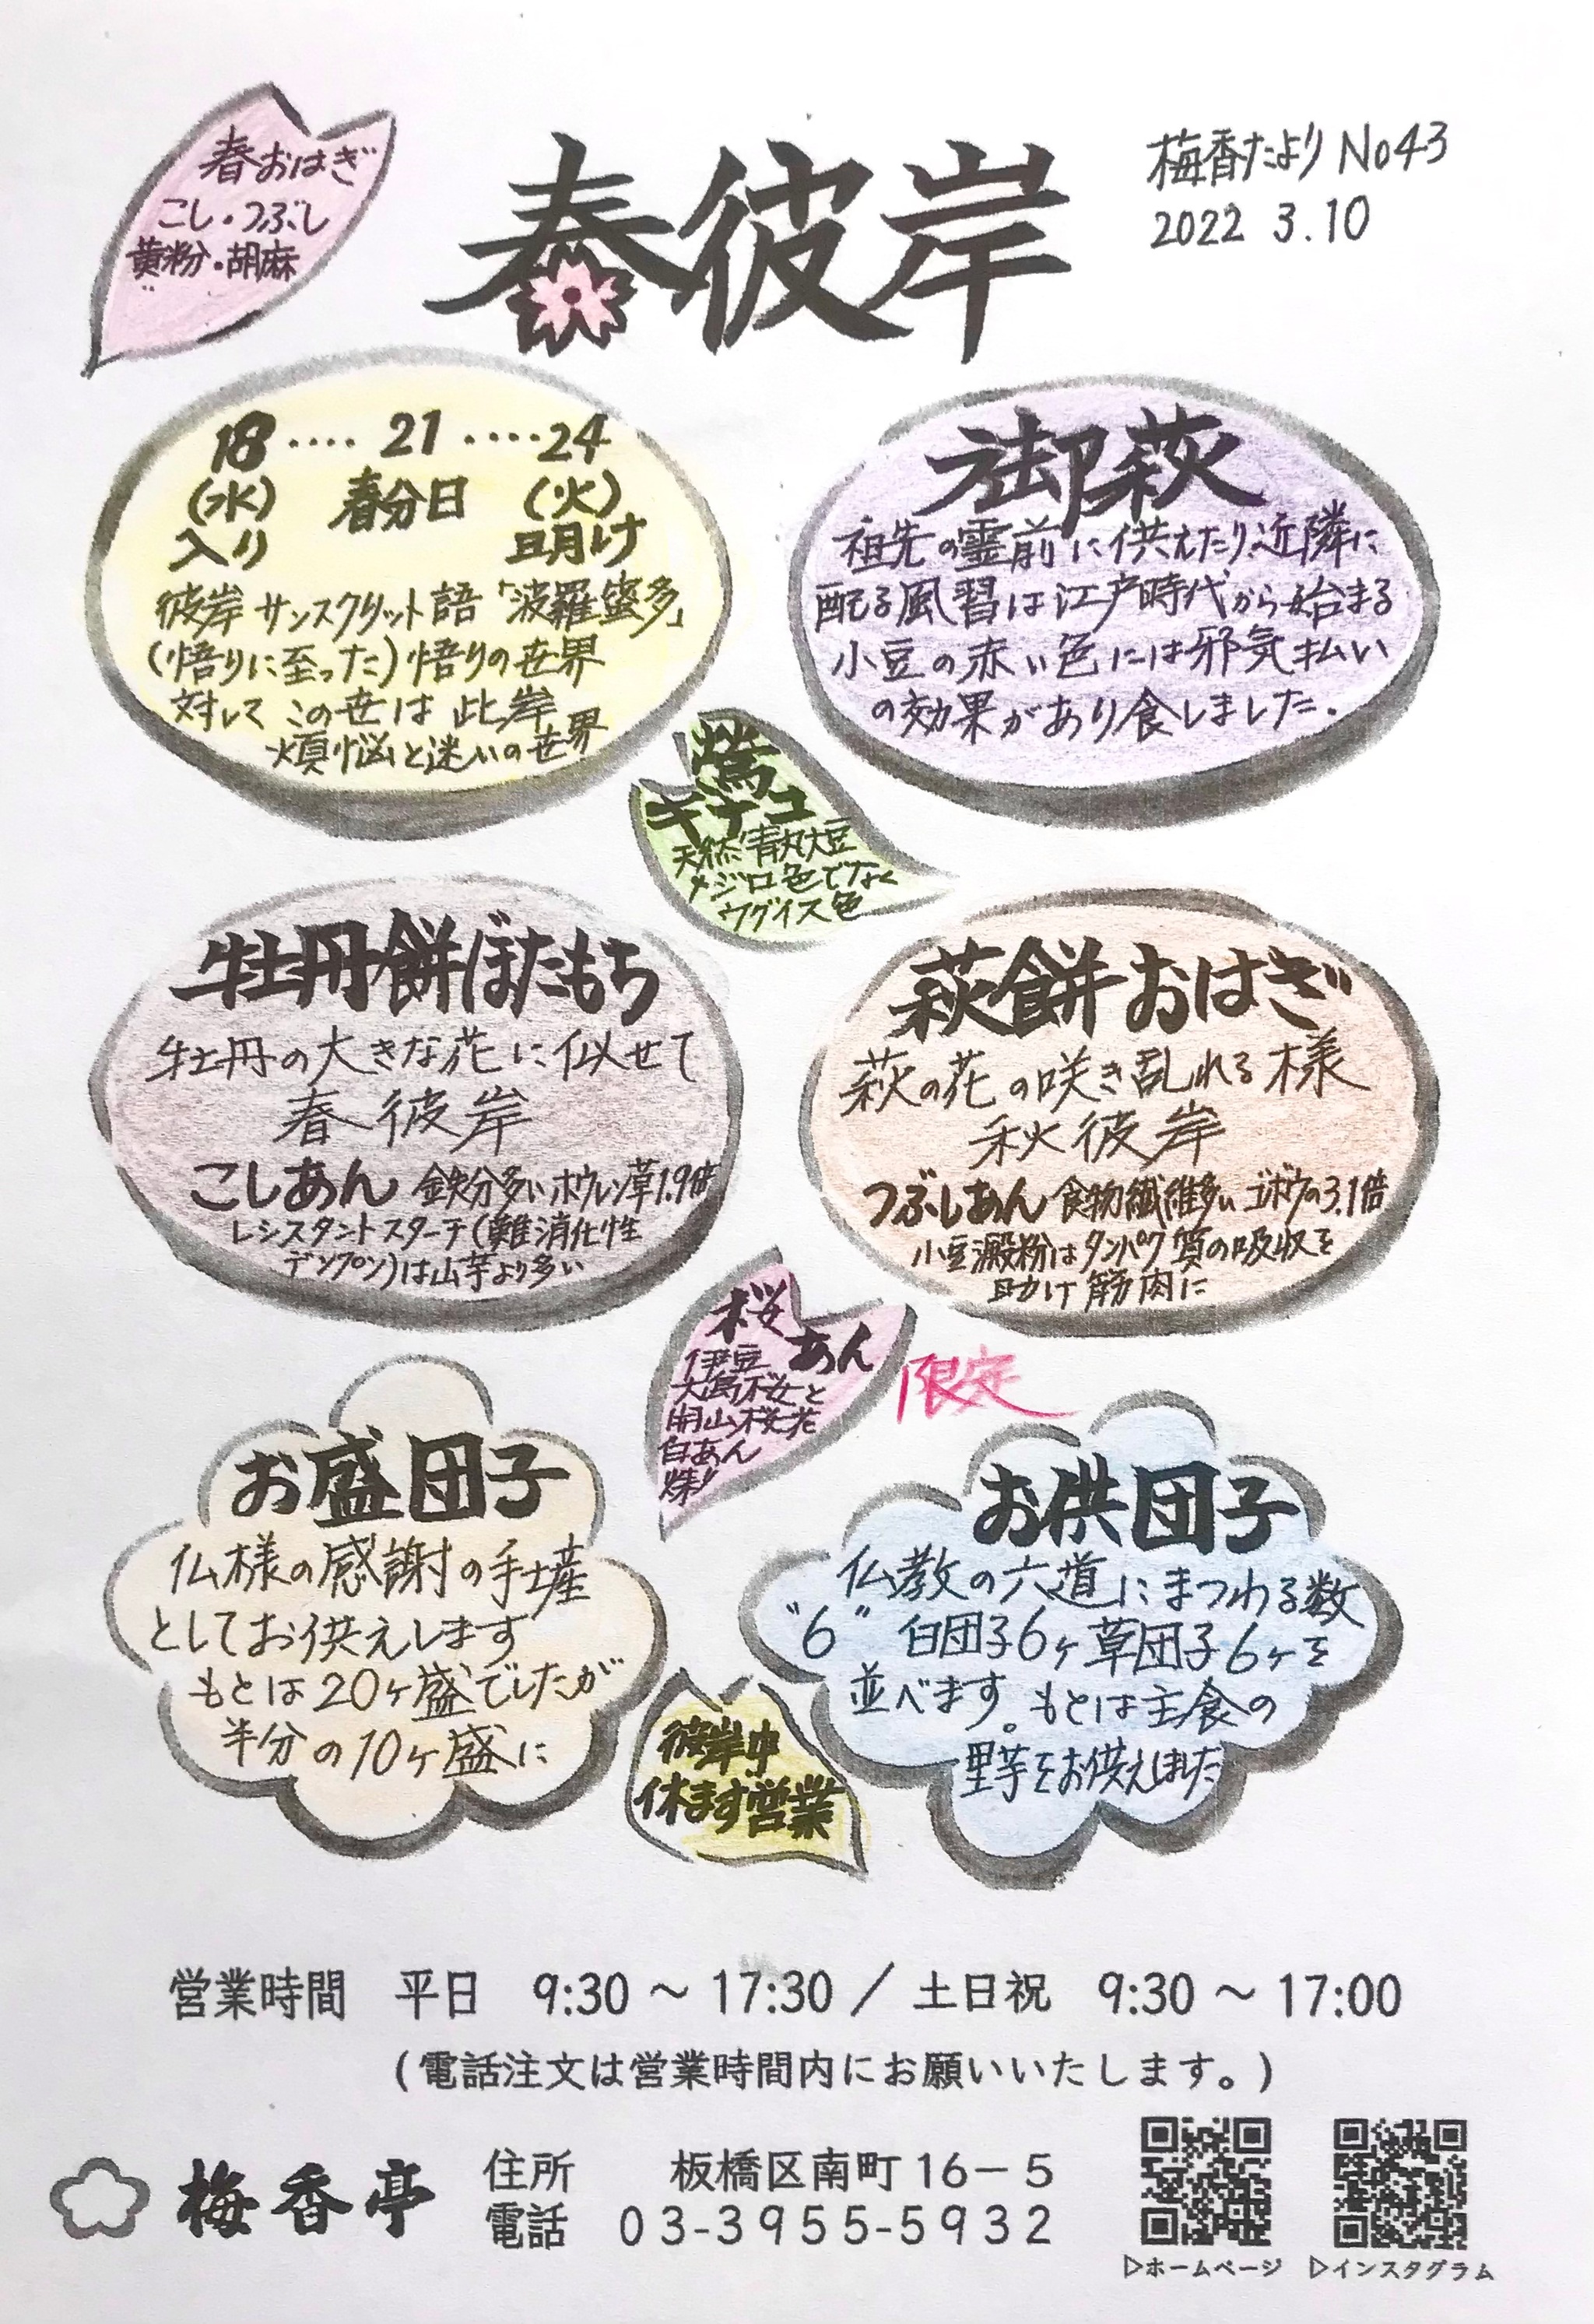 春おはぎ
こし・つぶし
黄粉・胡麻
春彼岸
梅香だより No43
2022 3.10
18 ‥‥ 21 ‥‥ 24
(水) 春分日 (火)
入り 明け
彼岸 サンスクリット語「波羅蜜多」
(悟りに至った)悟りの世界
対して この世は 此岸
煩悩と迷いの世界
御萩
祖先の霊前に供えたり、近隣に
配る風習は江戸時代から始まる
小豆の赤い色には邪気払い
の効果があり食しました.
鶯
キナコ
天然青丸大豆
メジロ色でなく
ウグイス色
牡丹餅ぼたもち
牡丹の大きな花に似せて
春彼岸
こしあん 鉄分多いホウレン草1.9倍
レジスタントスターチ(難消化性
デンプン)は山芋より多い
萩餅おはぎ
萩の花の咲き乱れる様
秋彼岸
つぶしあん 食物繊維多いゴボウの3.1倍
小豆澱粉はタンパク質の吸収を
助け筋肉に
桜あん
伊豆
大島桜と
関山桜花
白あん
煉り
限定
お盛団子
仏様の感謝の手土産
としてお供えします
もとは20ヶ盛でしたが
半分の10ヶ盛に
お供団子
仏教の六道にまつわる数
"6" 白団子6ヶ草団子6ヶを
並べます。もとは主食の
里芋をお供えしました
彼岸中
休まず営業
営業時間 平日 9:30 ～ 17:30 / 土日祝 9:30 ～ 17:00
(電話注文は営業時間内にお願いいたします。)
梅香亭
住所 板橋区南町16－5
電話 03-3955-5932
▷ホームページ ▷インスタグラム